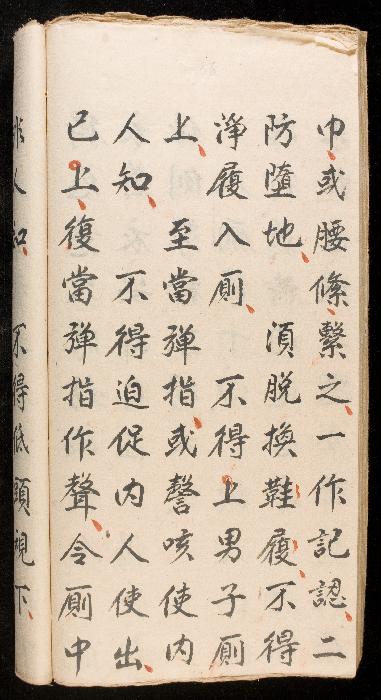 巾或腰絛繫之一作記認二
防墮地 須脫換鞋履不得
淨履入厠 不得上男子厠
上 至當彈指或謦咳使内
人知 不得迫促内人使出
已上復當彈指作聲令厠中
人知 不得低頭視下